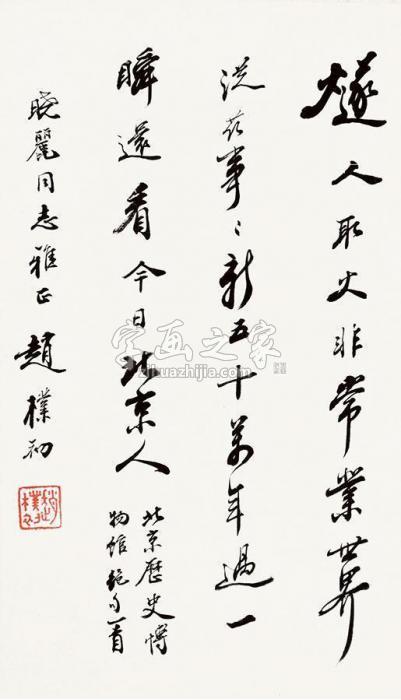 燧人取火非常業世界
從茲事〻新五十萬年過一
瞬還看今日北京人
北京歷史博
物館絕句一首
晓麗同志雅正 趙樸初
趙樸初
字画之家
zihuazhijia.com